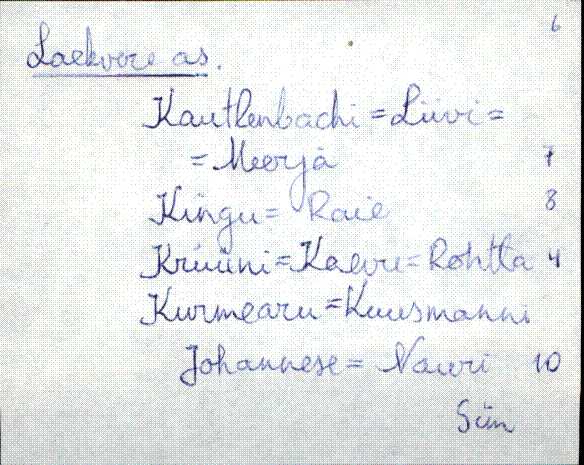 6
Laekvere as.
Kautlenbachi = Liivi =
= Meerja 7
Kingu = Raie 8
Kruuni = Kaevu = Rohtla 4
Kurmearu = Kuusmanni
Johannese = Nauri 10
Siin